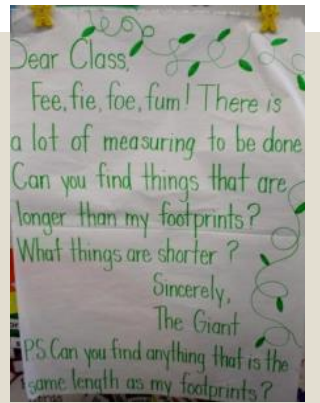 Dear Class,
Fee, fie, foe, fum! There is
a lot of measuring to be done
Can you find things that are
longer than my footprints?
What things are shorter?
Sincerely,
The Giant
P.S. Can you find anything that is the
same length as my footprints?